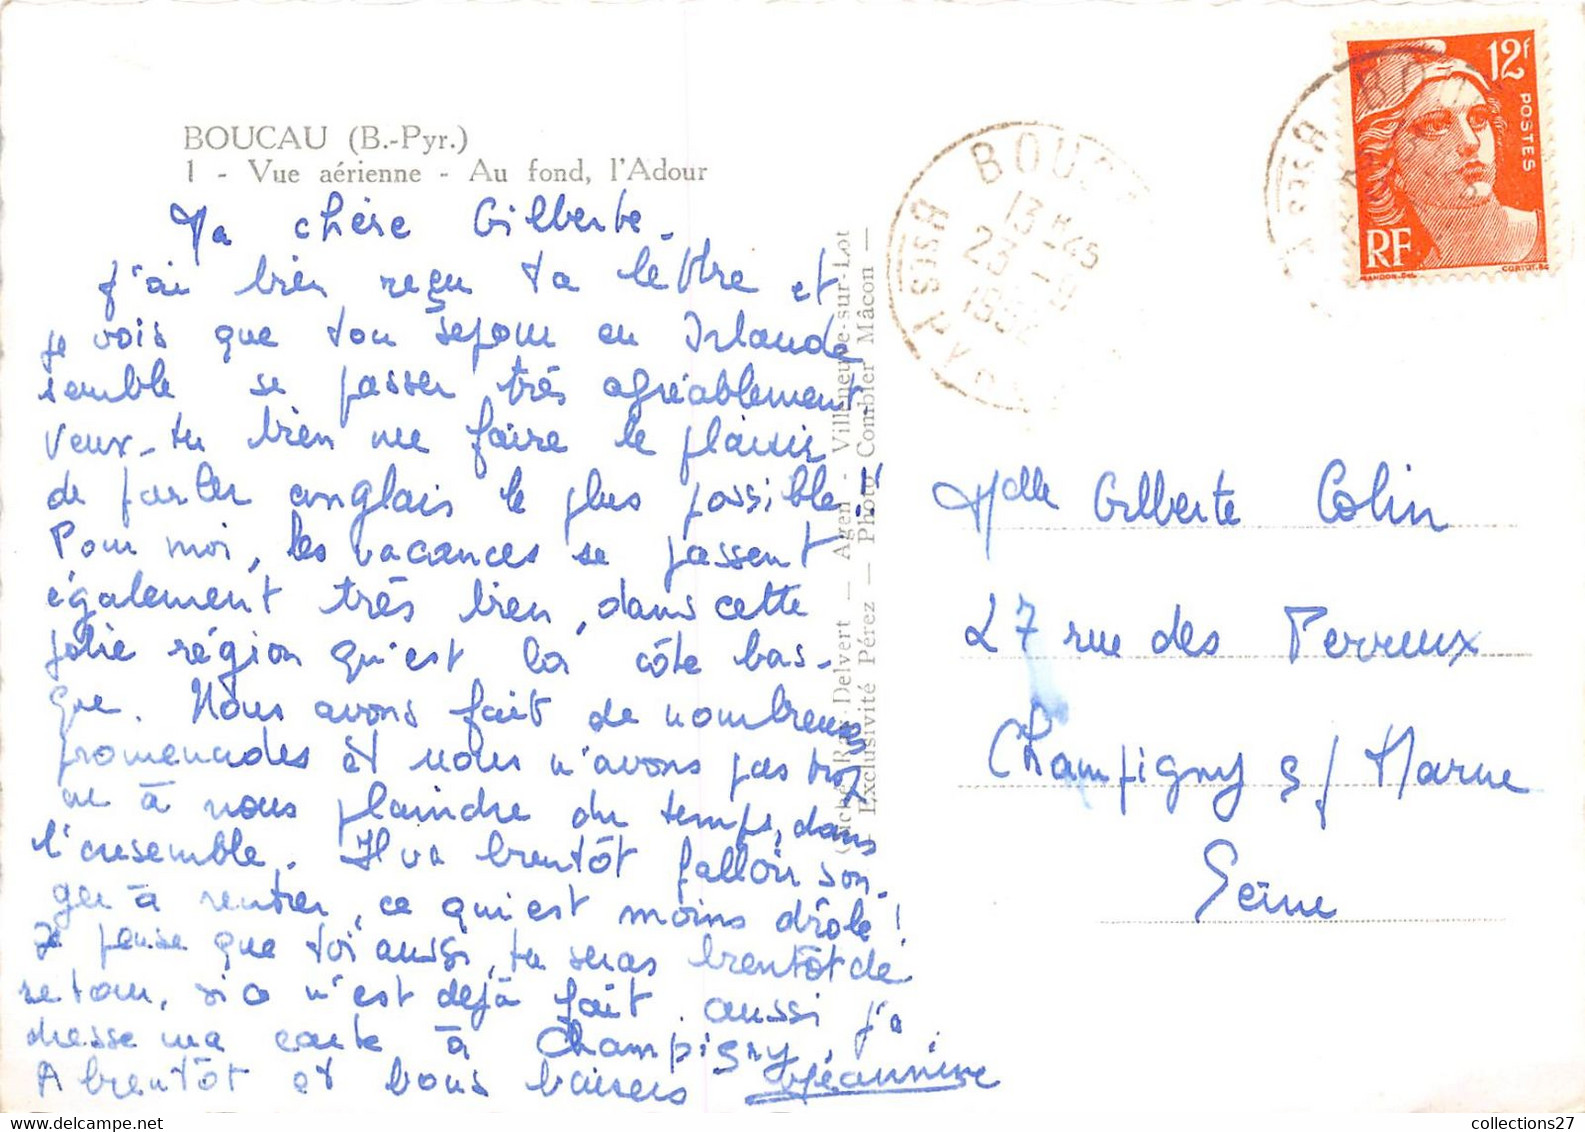 BOUCAU (B.-Pyr.)
1 - Vue aérienne - Au fond, l'Adour
Ma chère Gilberte.
j'ai bien reçu ta lettre et
je vois que ton séjour en Irlande
semble se passer très agréablement
Veux-tu bien me faire le plaisir
de parler anglais le plus possible!
Pour moi, les vacances se passent
également très bien, dans cette
jolie région qu'est la côte bas-
que. Nous avons fait de nombreuses
promenades et nous n'avons pas trop
eu à nous plaindre du temps, dans
l'ensemble. Il va bientôt falloir son-
ger à rentrer, ce qui est moins drôle!
Je pense que toi aussi, tu seras bientôt de
retour, si ce n'est déjà fait. aussi j'a
dresse ma carte à Champigny.
A bientôt et bons baisers Jeannine
Delvert — Agen - Villeneuve-sur-Lot
Exclusivité Pérez — Photo Combier Mâcon —
BOUC
13H45
23 -9
1952
BSES PYR
12F
POSTES
RF
GANDON DEL.
CORTOT.SC
BOU
BSES
Melle Gilberte Colin
27 rue des Perreux
Champigny s/ Marne
Seine
collections27